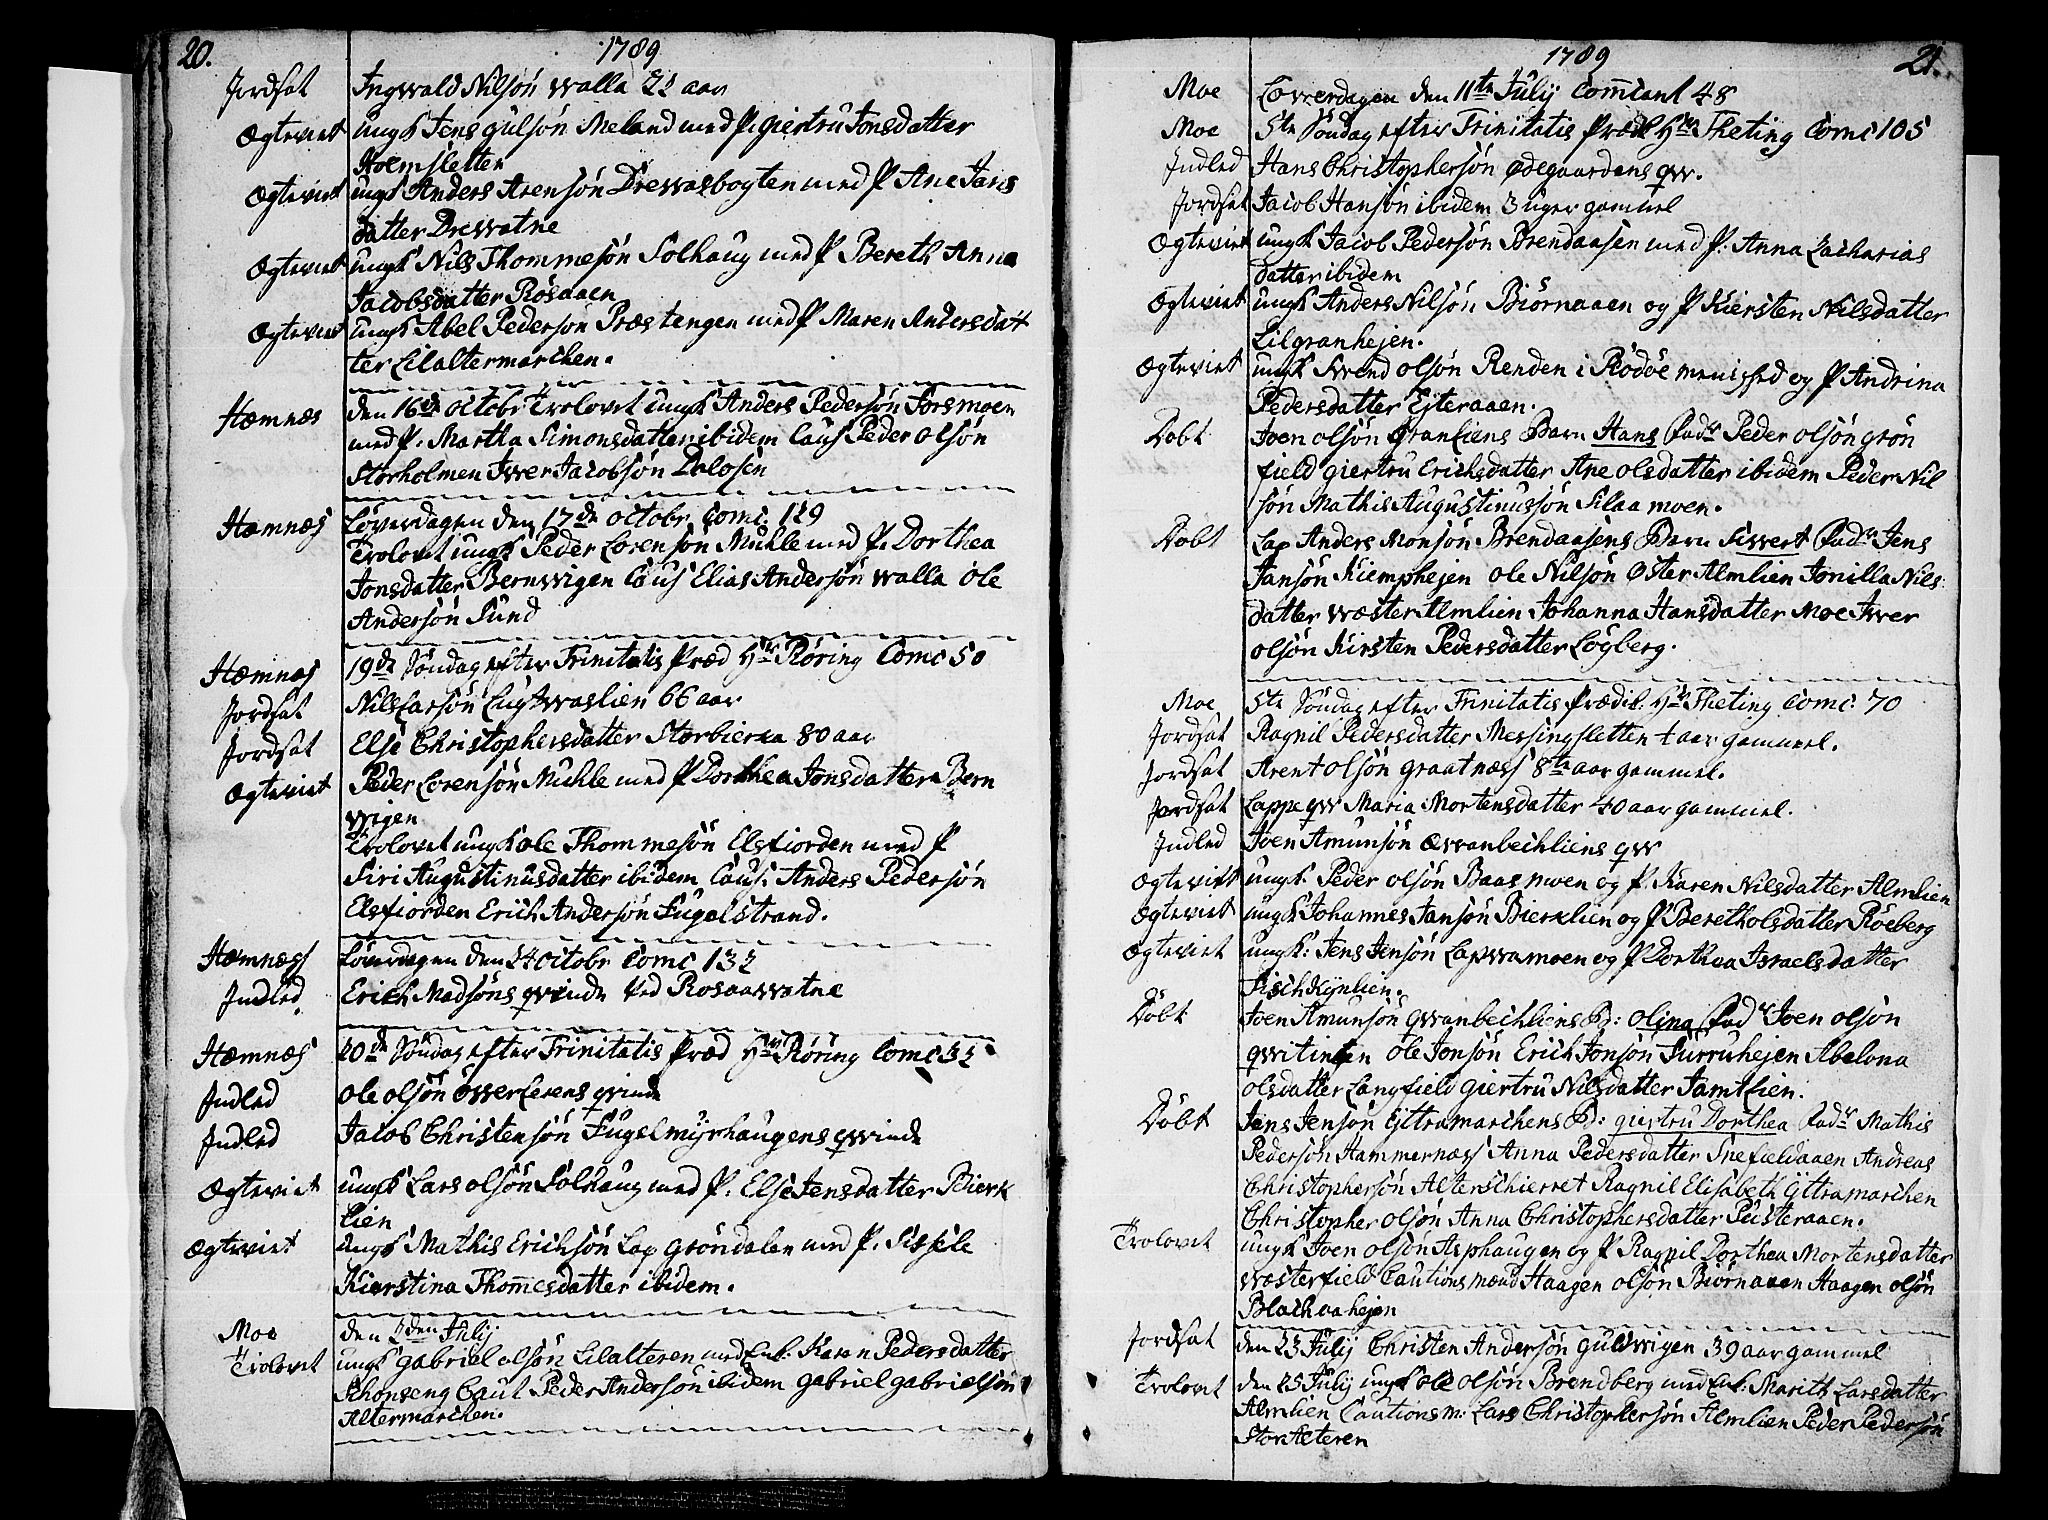 20.
1789
Jordsat Ingwald Nilsön walla 22 aar
Ægteviet ungk Jens gulsön Meland med P. giertru Jonsdatter
Holmsletten
Ægteviet ungk Anders Arensön Drewasbogten med P Ane Jans
datter Drewatne
Ægteviet ungk Nils Thommesön Solhaug med P Bereth Anna
Jacobsdatter Rösaaen
Ægteviet ungk Abel Pederson Præstengen med P Maren Andersdat
ter Lilaltermarchen.
Hæmnæs den 16de octobr Trolovet ungk Anders Pedersön Forsmoen
med P. Martha Simonsdatter ibidem Caus Peder olsön
Storholmen Iwer Jacobsön Dalosen
Hæmnæs Löverdagen den 17de octobr Comc. 119
Trolovet ungk Peder Lorensön Muhle med P. Dorthea
Jonsdatter Bernwigen Caus Elias Andersön walla ole
Andersön Sund
Hæmnæs 19de Söndag efter Trinitatis Præd Hr Röring Comc 50
Jordsat Nils Larsön Lugtwaslien 66 aar
Jordsat Else Christophersdatter Storbierka 80 aar
Ægteviet Peder Lorensön Muhle med P Dorthea Jonsdatter Bern
wigen
Trolovet ungk ole Thommesön Elsfiorden med P
Siri Augustinusdatter ibidem Caus. Anders Pedersön
Elsfiorden Erich Andersön Fugelstrand.
Hæmnæs Löverdagen den 24 octobr Comc 132
Indled. Erich Madsöns qvinde ved Rosaawatne
Hæmnæs 20de Söndag efter Trinitatis Præd Hr Röring Comc 32
Indled ole olsön överlerens qvinde
Indled Jacob Christensön Fugelmyrhaugens qwinde
Ægteviet ungk Lars olsön Solhaug med P. Else Jensdatter Bierk
lien
Ægteviet ungk Mathis Erichsön Lap gröndalen med P. Sissele
Kierstina Thommesdatter ibidem.
Moe den 2den July
Trolovet ungk gabriel olsön Lilalteren med Enk. Karen Pedersdatter
Schonseng Caut Peder Andersön ibidem gabriel gabrielsön
Altermarchen.
1789
21.
Moe Löverdagen den 11te July Comcant 48
Moe 5te Söndag efter Trinitatis Præd Hr Theting Comc 105
Indled Hans Christophersön ødegaardens qw.
Jordsat Jacob Hansön ibidem 3 uger gammel
Ægteviet ungk Jacob Pedersön Brendaasen med P. Anna Zacharias
datter ibidem
Ægteviet ungk Anders Nilsön Biörnaaen og P Kiersten Nilsdatter
Lilgranhejen.
Ægteviet ungk Swend olsön Renden i Rödöe menished og P Andrina
Pedersdatter Ejteraaen.
Döbt Joen olsön granliens Barn Hans Fadr Peder olsön grön
field giertru Erichsdatter Ane olsdatter ibidem Peder Nil
sön Mathis Augustinussön Silaamoen.
Döbt Lap Anders Monsön Brendaasens Barn Siwert Fadr Jens
Jansön Kiemphejen ole Nilsön Öster Almlien Jonilla Nils
datter wæster Almlien Johanna Hansdatter Moe Iwer
olsön Kirsten Pedersdatter Lögberg.
Moe 5te Söndag efter Trinitatis Prædik. Hr Theting Comc. 70
Jordsat Ragnil Pedersdatter Messingsletten ¼ aar gammel.
Jordsat Arent olsön graatnæss 8te aar gammel.
Jordsat Lappe qw Maria Mortensdatter 40 aar gammel.
Indled Joen Amunsön qwanbechliens qw
Ægteviet ungk. Peder olsön Baasmoen og P. Karen Nilsdatter Almlien
Ægteviet ungk Johannes Jansön Bierklien og P Bereth olsdatter Röeberg
Ægteviet ungk: Jens Jensön Lapwamoen og P Dorthea Israelsdatter
Fischkynlien.
Döbt Joen Amunsön qwanbechliens B: olina Fadr Joen olsön
qwitinden ole Jonsön Erich Jonsön Furruhejen Abelona
olsdatter Langfield giertru Nilsdatter Jamtlien.
Döbt Jens Jensön Yttramarchens B: giertru Dorthea Fadr Mathis
Pedersön Hammernæss Anna Pedersdatter Snefieldaaen Andreas
Christophersön Alterschierret Ragnil Elisabeth Yttramarchen
Christopher olsön Anna Christophersdatter Pusteraaen.
Trolovet ungk Joen olsön Asphaugen og P Ragnil Dorthea Mortensdatter
wæsterfield Cautionsmænd Haagen olsön Biörnaaen Haagen olsön
Blachaahejen
Jordsat den 23 July Christen Andersön guldwigen 39 aar gammel
Trolovet den 25 July ungk ole olsön Brendberg med Enk: Marith Larsdatter
Almlien Cautionsm: Lars Christophersön Almlien Peder Pedersön
Stor Alteren